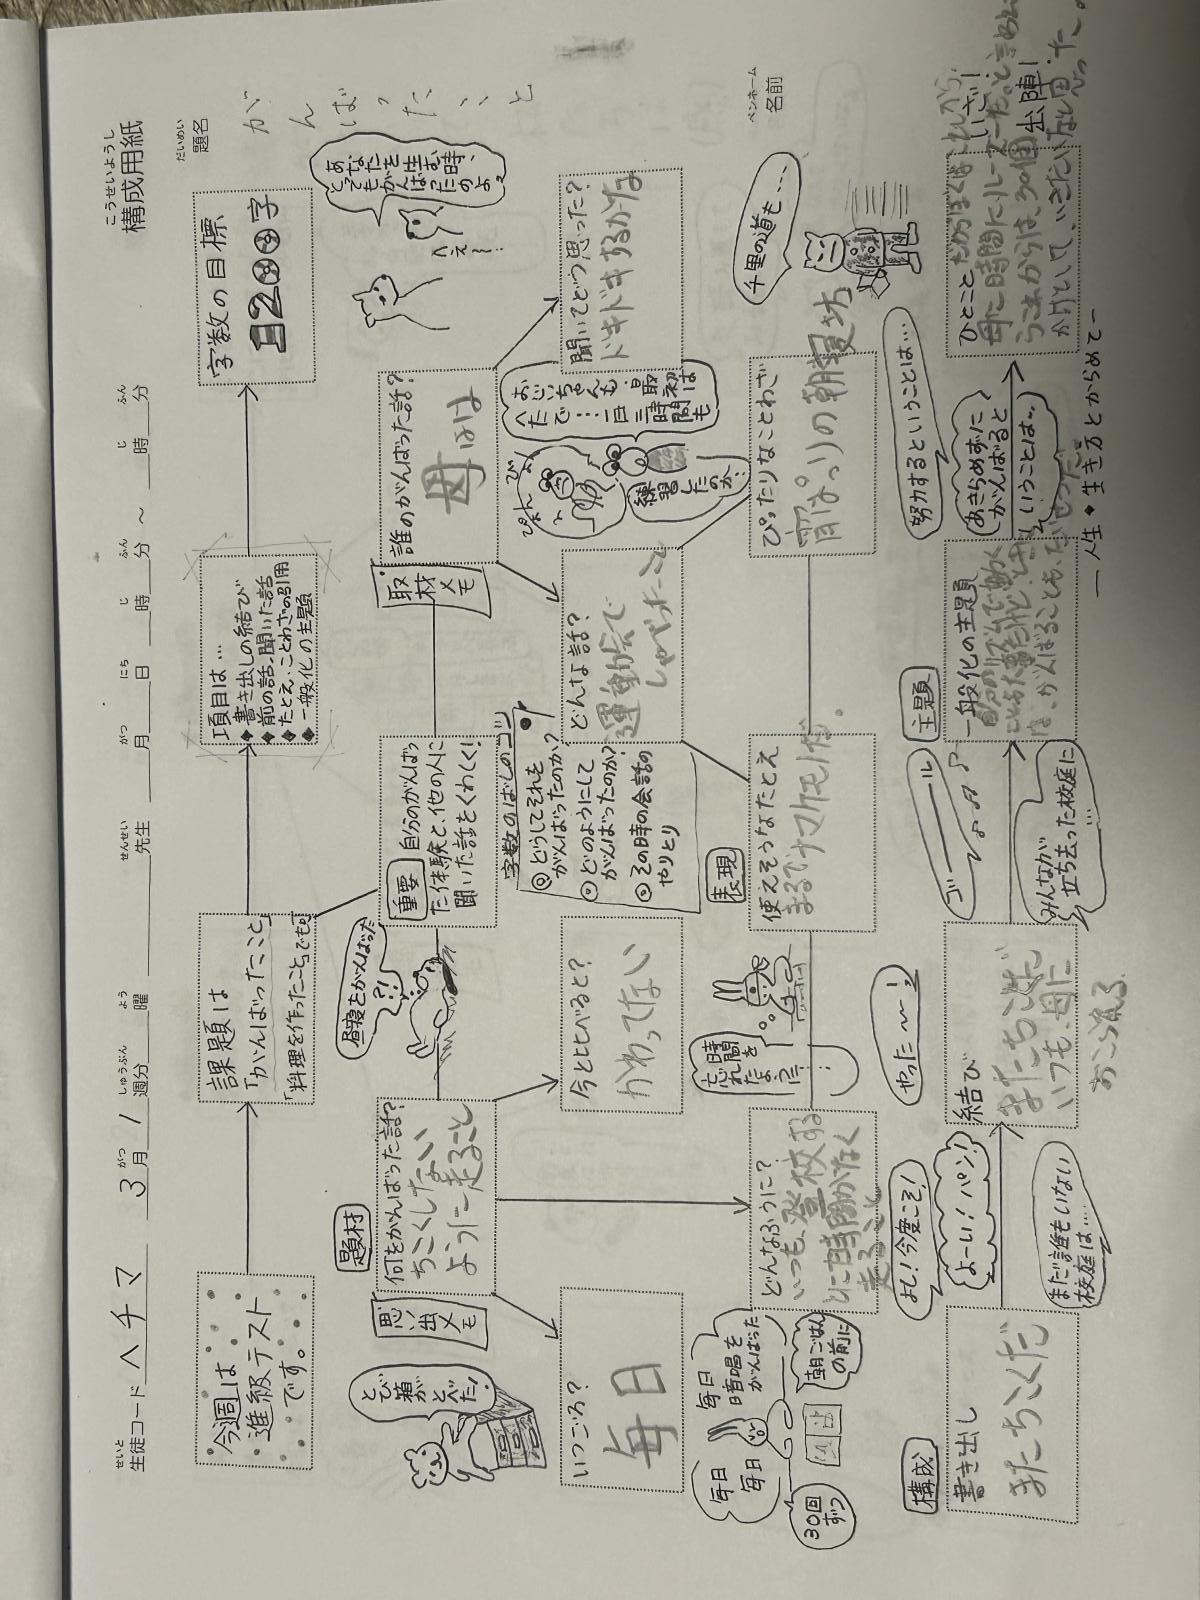 こうせいようし
構成用紙
せいと
生徒コード ヘチマ
がつ
3月
しゅうぶん
1週分
よう
曜
せんせい
先生
がつ
月
にち
日
じ
時
ふん
分～
じ
時
ふん
分
だいめい
題名
がんばったこと
今週は
進級テスト
です。
課題は
「がんばったこと」
「料理を作ったこと」でも。
項目は…
◆書き出しの結び
◆前の話、聞いた話
◆たとえ、ことわざの引用
◆一般化の主題
字数の目標
1200字
とび箱が
とべた！
思い出メモ
題材
何をがんばった話？
ちこくしない
ように走ること
昼寝をがんばった
?!
重要
自分のがんばっ
た体験と、他の人に
聞いた話をくわしく！
取材メモ
誰のがんばった話？
母は
へえ～！
あなたを
生む時、
とても
がんばったのよ
いつごろ？
毎日
今とくらべると？
かわってない
字数のばしのコツ
◎どうしてそれを
がんばったのか？
◎どのようにして
がんばったのか？
◎その時の会話の
やりとり
どんな話？
運動会で
しゃべったこと
ぴょんぴょん
おじいちゃんも最初は
へたで…一日三時間も
練習したのか
聞いてどう思った？
ドキドキするかな
毎日
毎日
毎日
暗唱を
がんばった
30回
ずつ
朝ごはん
の前に
どんなふうに？
いつも、登校する
とに時間がなく
走ること
時間を
忘れ
たように
表現
使えそうなたとえ
まるでナマケモノだ。
ぴったりなことわざ
宵っぱりの朝寝坊
千里の道も…
ペンネーム
名前
構成
書き出し
またちこくだ
よし！今度こそ！
よーい！パン！
まだ誰もいない
校庭は…
やった～！
結び
またちこくだ
いつも、母に
おこられる
ゴール
みんなが
立ち去った校庭に
…
主題
一般化の主題
努力するということは…
あきらめずに
がんばると
いうことは…
ひとこと
いざ！
出陣！
―人生◆生き方とからめて―